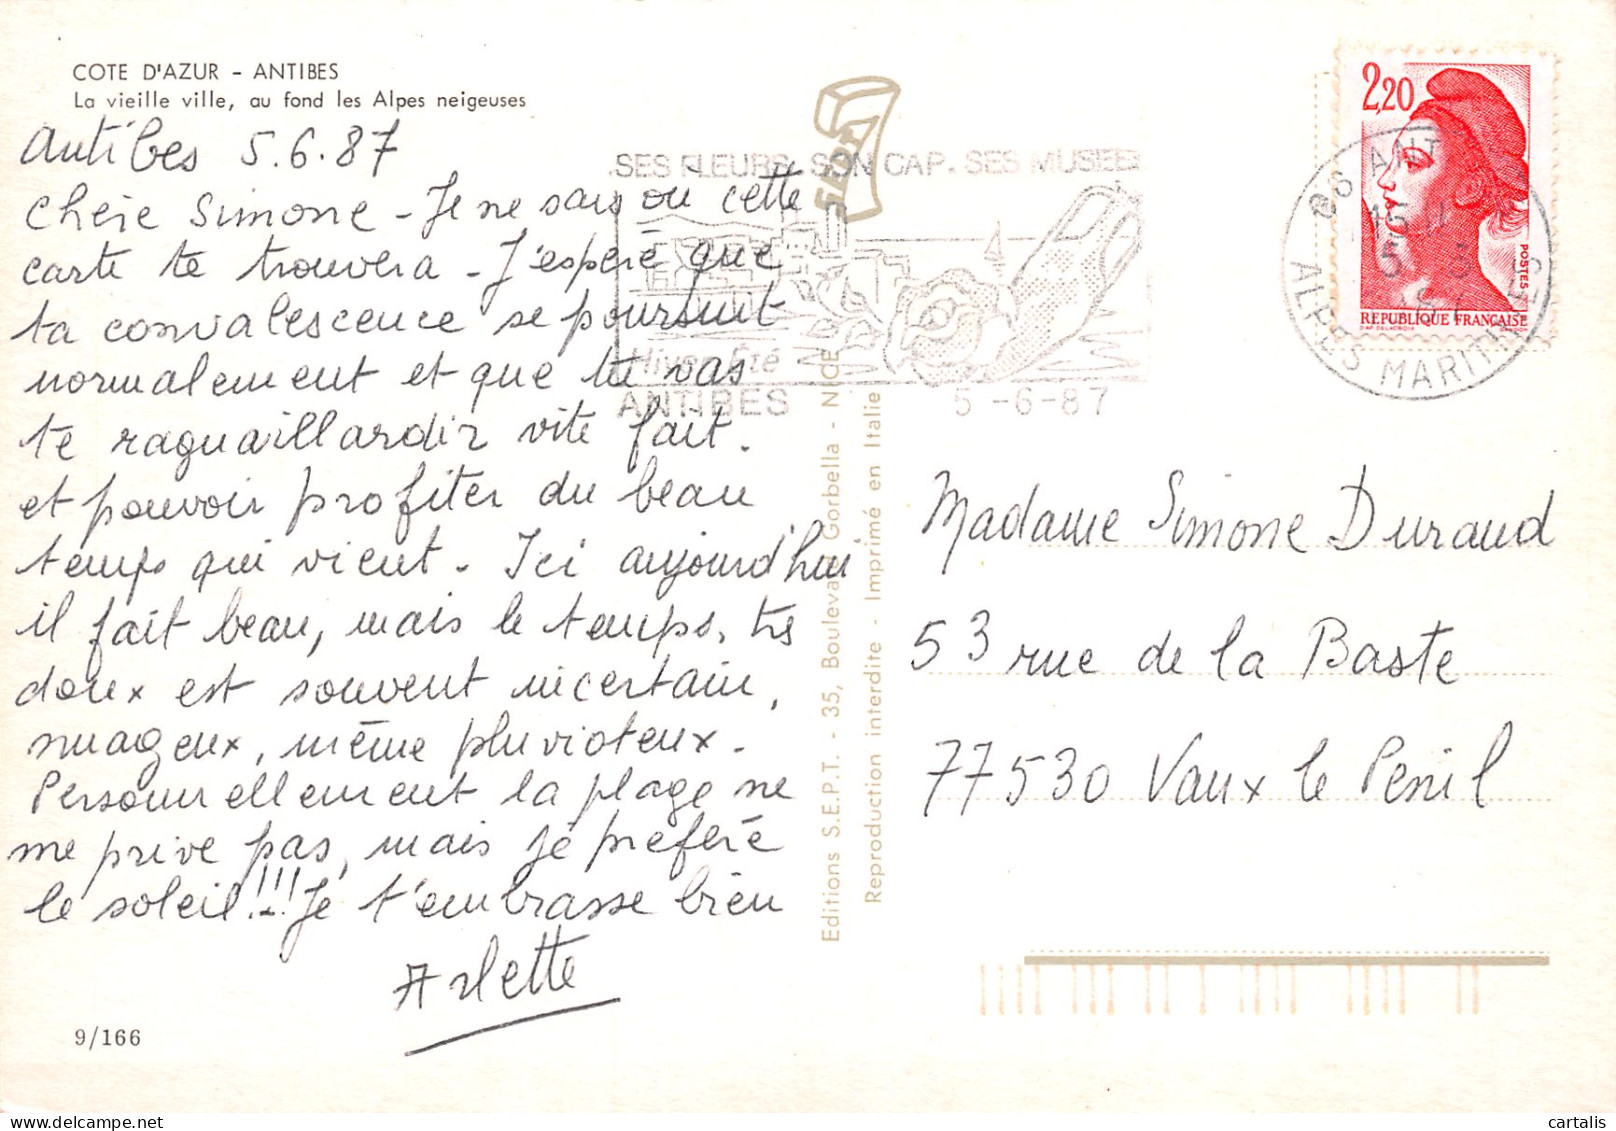 COTE D'AZUR - ANTIBES
La vieille ville, au fond les Alpes neigeuses
Antibes 5.6.87
Chère Simone - Je ne sais où cette
carte te trouvera - J'espère que
ta convalescence se poursuit
normalement et que tu vas
te raguaillardir vite fait.
et pouvoir profiter du beau
temps qui vient - Ici aujourd'hui
il fait beau, mais le temps, très
doux est souvent incertain,
nuageux, même pluvioteux -
Personnellement la plage ne
me prive pas, mais je préfère
le soleil!!! Je t'embrasse bien
Arlette
9/166
SES FLEURS. SON CAP. SES MUSEES
Hiver Été
ANTIBES 5-6-87
SEPT
Editions S.E.P.T. - 35, Boulevard Gorbella - NICE
Reproduction interdite - Imprimé en Italie
2,20
POSTES
REPUBLIQUE FRANÇAISE
06 ANTIBES
15 H
5 - 6
1987
ALPES MARITIMES
Madame Simone Durand
53 rue de la Baste
77530 Vaux le Penil
cartalis